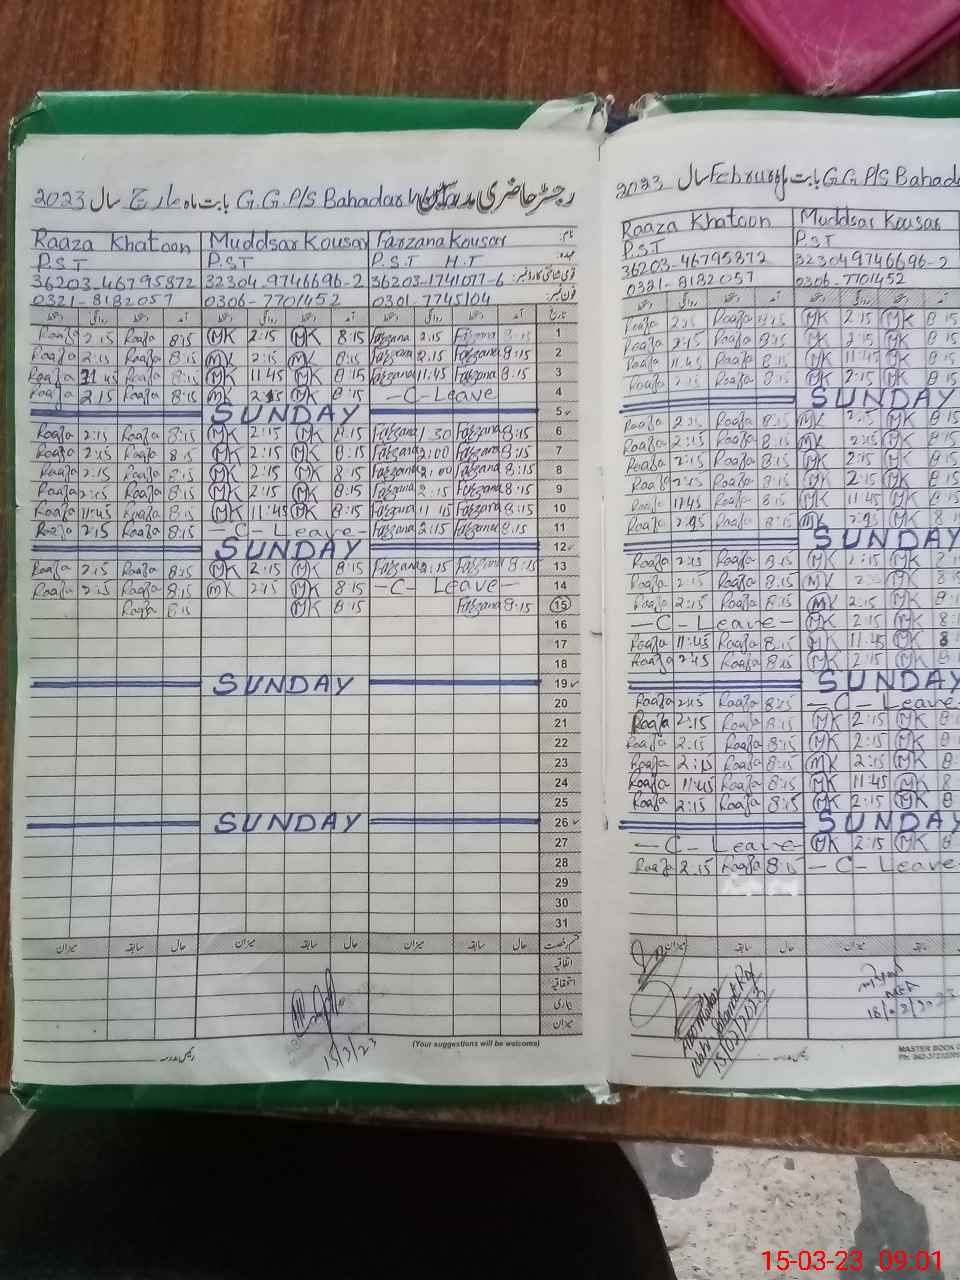 رجسٹر حاضری مدرسین G.G.P/S Bahadar بابت ماہ مارچ سال 2023
Raaza Khatoon Muddsar Kousar Farzana Kousar نام:
P.S.T P.S.T P.S.T H.T عہدہ:
36203-46795872 32304-9746696-2 36203-1741077-6 قومی شناختی کارڈ نمبر:
0321-8182057 0306-7701452 0301-7745104 فون نمبر:
دستخط روانگی دستخط آمد دستخط روانگی دستخط آمد دستخط روانگی دستخط آمد تاریخ
Raaza 2:15 Raaza 8:15 MK 2:15 MK 8:15 Farzana 2:15 Farzana 8:15 1
Raaza 2:15 Raaza 8:15 MK 2:15 MK 8:15 Farzana 2:15 Farzana 8:15 2
Raaza 11:45 Raaza 8:15 MK 11:45 MK 8:15 Farzana 11:45 Farzana 8:15 3
Raaza 2:15 Raaza 8:15 MK 2:15 MK 8:15 -C-Leave 4
SUNDAY 5
Raaza 2:15 Raaza 8:15 MK 2:15 MK 8:15 Farzana 1:30 Farzana 8:15 6
Raaza 2:15 Raaza 8:15 MK 2:15 MK 8:15 Farzana 2:00 Farzana 8:15 7
Raaza 2:15 Raaza 8:15 MK 2:15 MK 8:15 Farzana 2:00 Farzana 8:15 8
Raaza 2:15 Raaza 8:15 MK 2:15 MK 8:15 Farzana 2:15 Farzana 8:15 9
Raaza 11:45 Raaza 8:15 MK 11:45 MK 8:15 Farzana 11:45 Farzana 8:15 10
Raaza 2:15 Raaza 8:15 -C-Leave- Farzana 2:15 Farzana 8:15 11
SUNDAY 12
Raaza 2:15 Raaza 8:15 MK 2:15 MK 8:15 Farzana 2:15 Farzana 8:15 13
Raaza 2:15 Raaza 8:15 MK 2:15 MK 8:15 -C- Leave- 14
Raaza 8:15 MK 8:15 Farzana 8:15 15
16
17
18
SUNDAY 19
20
21
22
23
24
25
SUNDAY 26
27
28
29
30
31
میزان سابقہ حال میزان سابقہ حال میزان سابقہ حال قسم رخصت
اتفاقیہ
استحقاقیہ
بیماری
میزان
15/3/23
(Your suggestions will be welcome)
رئیس مدرسہ
G.G P/S Bahada بابت February سال 2023
Raaza Khatoon Muddsar Kousar
P.S.T P.S.T
36203-46795872 32304 9746696-2
0321-8182057 0306-7701452
دستخط روانگی دستخط آمد دستخط روانگی دستخط آمد
Raaza 2:15 Raaza 8:15 MK 2:15 MK 8:15
Raaza 2:15 Raaza 8:15 MK 2:15 MK 8:15
Raaza 11:45 Raaza 8:15 MK 11:45 MK 8:15
Raaza 2:15 Raaza 8:15 MK 2:15 MK 8:15
SUNDAY
Raaza 2:15 Raaza 8:15 MK 2:15 MK 8:15
Raaza 2:15 Raaza 8:15 MK 2:15 MK 8:15
Raaza 2:15 Raaza 8:15 MK 2:15 MK 8:15
Raaza 2:15 Raaza 8:15 MK 2:15 MK 8:15
Raaza 11:45 Raaza 8:15 MK 11:45 MK 8:15
Raaza 2:15 Raaza 8:15 MK 2:15 MK 8:15
SUNDAY
Raaza 2:15 Raaza 8:15 MK 2:15 MK 8:15
Raaza 2:15 Raaza 8:15 MK MK 8:15
Raaza 2:15 Raaza 8:15 MK 2:15 MK 8:1
-C-Leave- MK 2:15 MK 8:1
Raaza 11:45 Raaza 8:15 MK 11:45 MK 8
Raaza 2:15 Raaza 8:15 MK 2:15 MK 8:
SUNDAY
Raaza 2:15 Raaza 8:15 -C-Leave-
Raaza 2:15 Raaza 8:15 MK 2:15 MK 8:
Raaza 2:15 Raaza 8:15 MK 2:15 MK 8:
Raaza 2:15 Raaza 8:15 MK 2:15 MK 8:
Raaza 11:45 Raaza 8:15 MK 11:45 MK 8
Raaza 2:15 Raaza 8:15 MK 2:15 MK 8
SUNDAY
-C-Leave- MK 2:15 MK 8
Raaza 2:15 Raaza 8:15 -C-Leave
میزان سابقہ حال میزان سابقہ
15/02/2023
MEA
18/02/2023
MASTER BOOK
رئیس مدرسہ
15-03-23 09:01